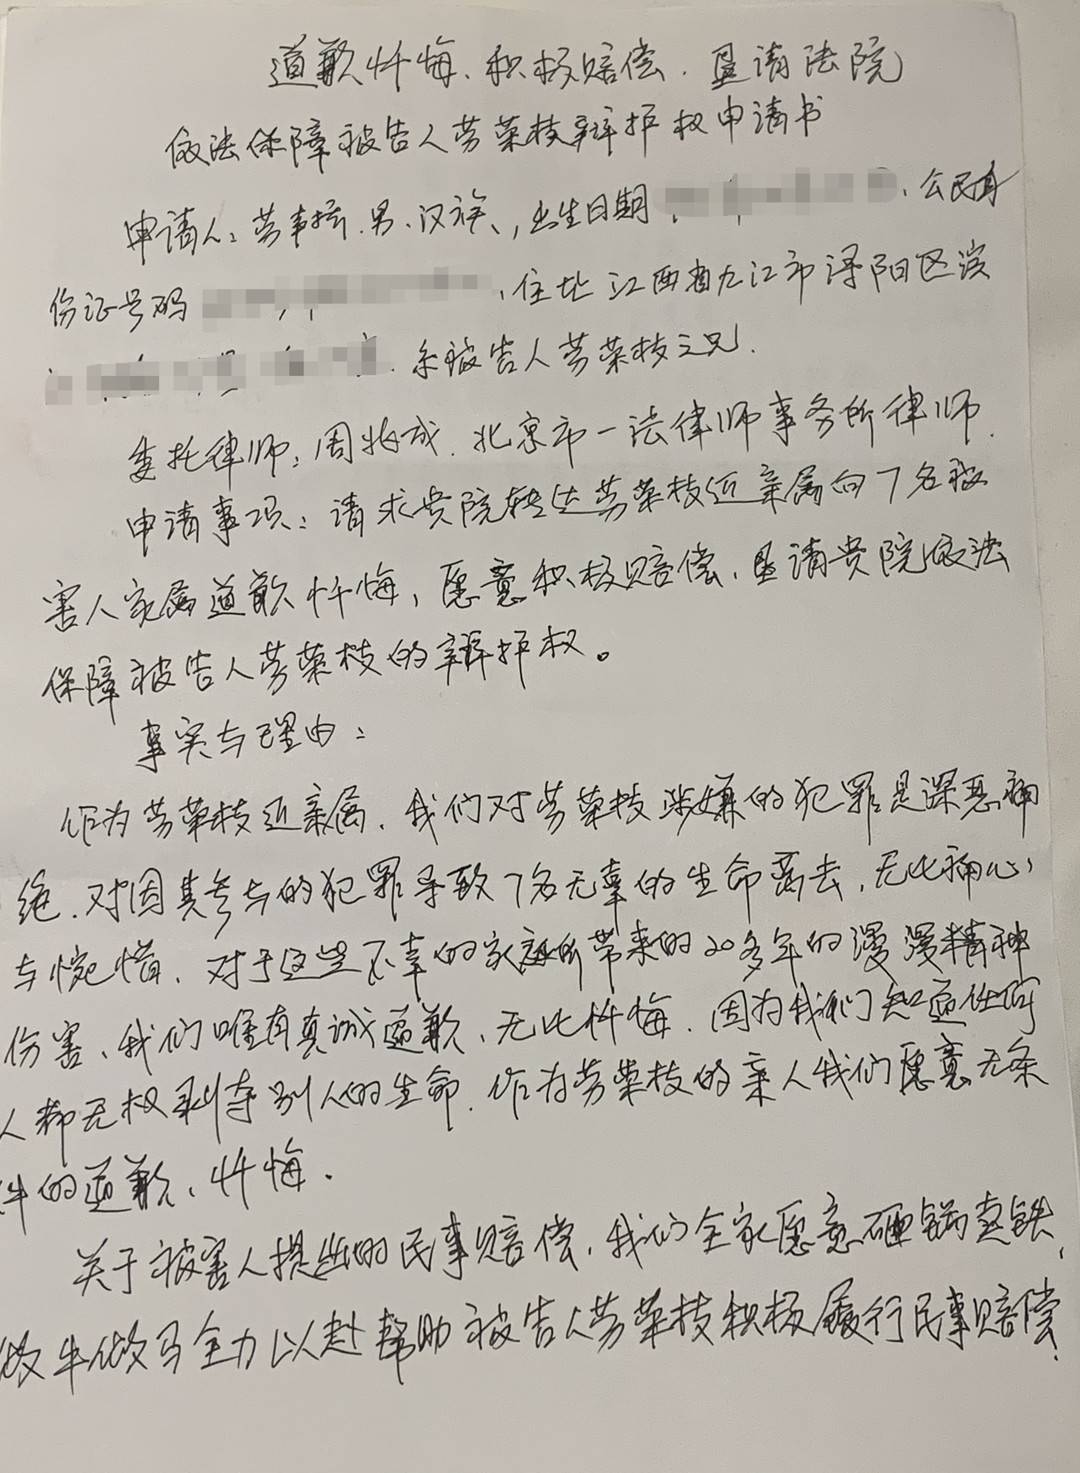 道歉忏悔、积极赔偿、恳请法院
依法保障被告人劳荣枝辩护权申请书
申请人：劳事措、男、汉族、，出生日期、公民身
份证号码、住址江西省九江市浔阳区滨
系被告人劳荣枝之兄.
委托律师：周兆成、北京市一法律师事务所律师.
申请事项：请求贵院转达劳荣枝近亲属向7名被
害人家属道歉忏悔，愿意积极赔偿、恳请贵院依法
保障被告人劳荣枝的辩护权。
事实与理由：
作为劳荣枝近亲属、我们对劳荣枝涉嫌的犯罪是深恶痛
绝、对因其参与的犯罪导致7名无辜的生命离去、无比痛心
与惋惜、对于这些不幸的家庭所带来的20多年的漫漫精神
伤害、我们唯有真诚道歉、无比忏悔、因为我们知道任何
人都无权剥夺别人的生命、作为劳荣枝的亲人我们愿意无条
件的道歉、忏悔.
关于被害人提出的民事赔偿、我们全家愿意砸锅卖铁、
做牛做马全力以赴帮助被告人劳荣枝积极履行民事赔偿.